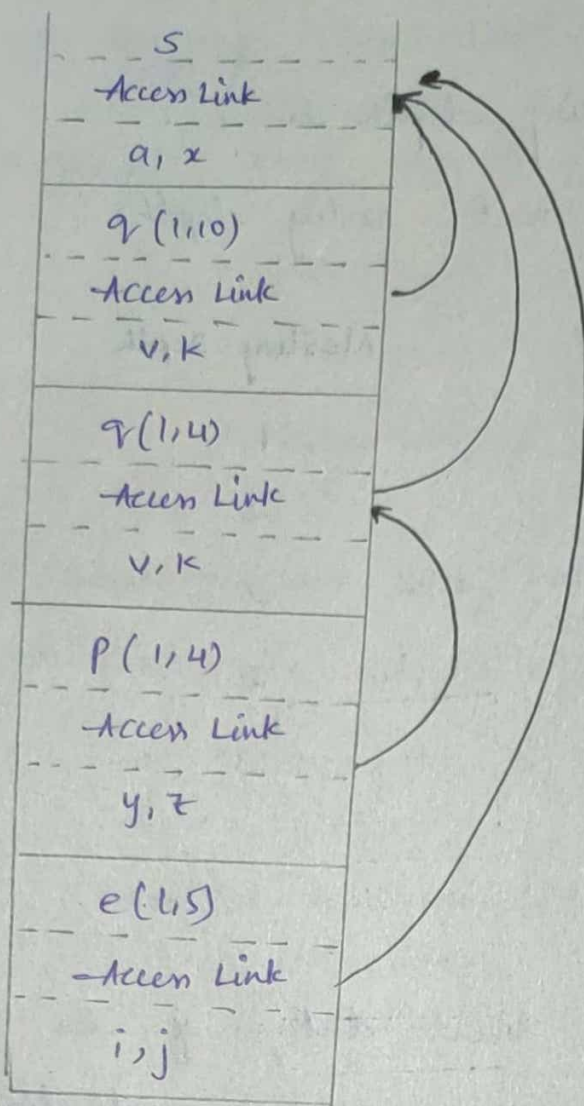 S
Access Link
a, x
q (1,10)
Access Link
v, k
q (1,4)
Access Link
v, k
P (1,4)
Access Link
y, z
e (1,5)
Access Link
i, j